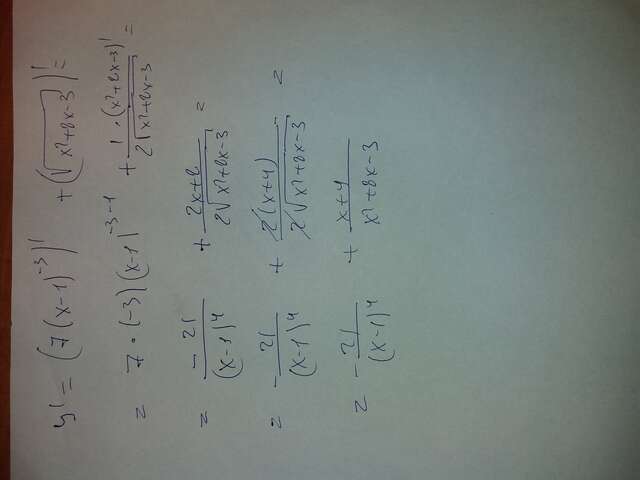 y' = (7(x-1)^{-3})' + (√(x²+8x-3))' =
= 7·(-3)(x-1)^{-3-1} + \frac{1·(x²+8x-3)'}{2√(x²+8x-3)} =
= \frac{-21}{(x-1)^4} + \frac{2x+8}{2√(x²+8x-3)} =
= -\frac{21}{(x-1)^4} + \frac{2(x+4)}{2√(x²+8x-3)} =
= -\frac{21}{(x-1)^4} + \frac{x+4}{x²+8x-3}